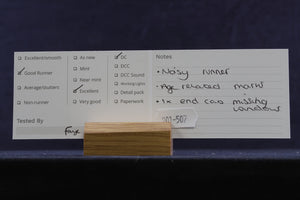 Excellent/smooth
Good Runner
Average/stutters
Non-runner
Tested By
Faye
As new
Mint
Near mint
Excellent
Very good
DC
DCC
DCC Sound
Working Lights
Detail pack
Paperwork
Notes
• Noisy runner
• Age related marks
• 1x end cab missing
windows
001-507